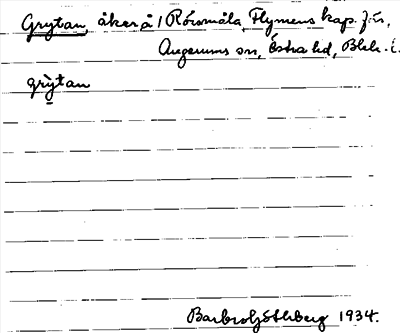 Grytan, åker å 1 Rörsmåla, Flymens kap. förs,
Augerums sn, Östra hd, Blek. l.
gry̠tan
Barbro Göthberg 1934.